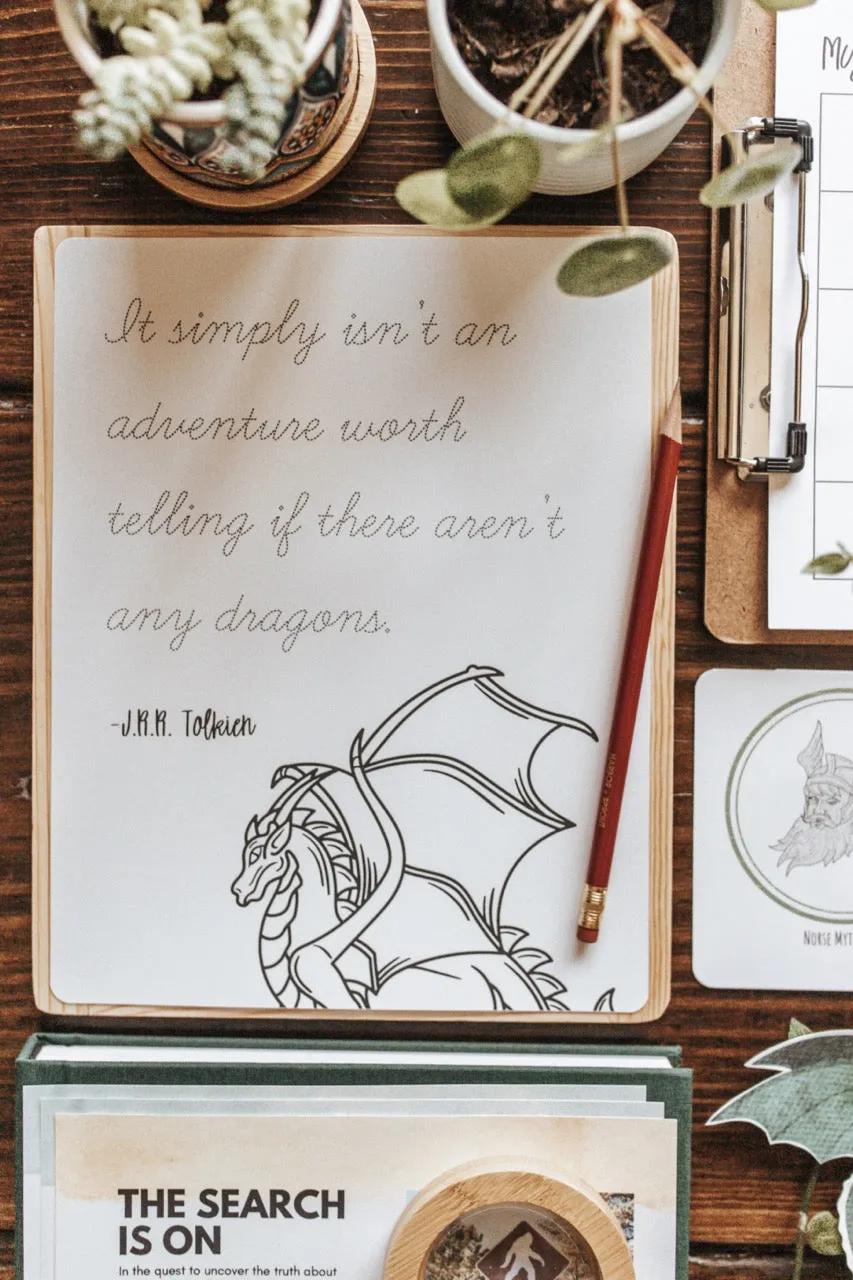 It simply isn't an
adventure worth
telling if there aren't
any dragons.
-J.R.R. Tolkien
My
NORSE MYT
THE SEARCH
IS ON
In the quest to uncover the truth about